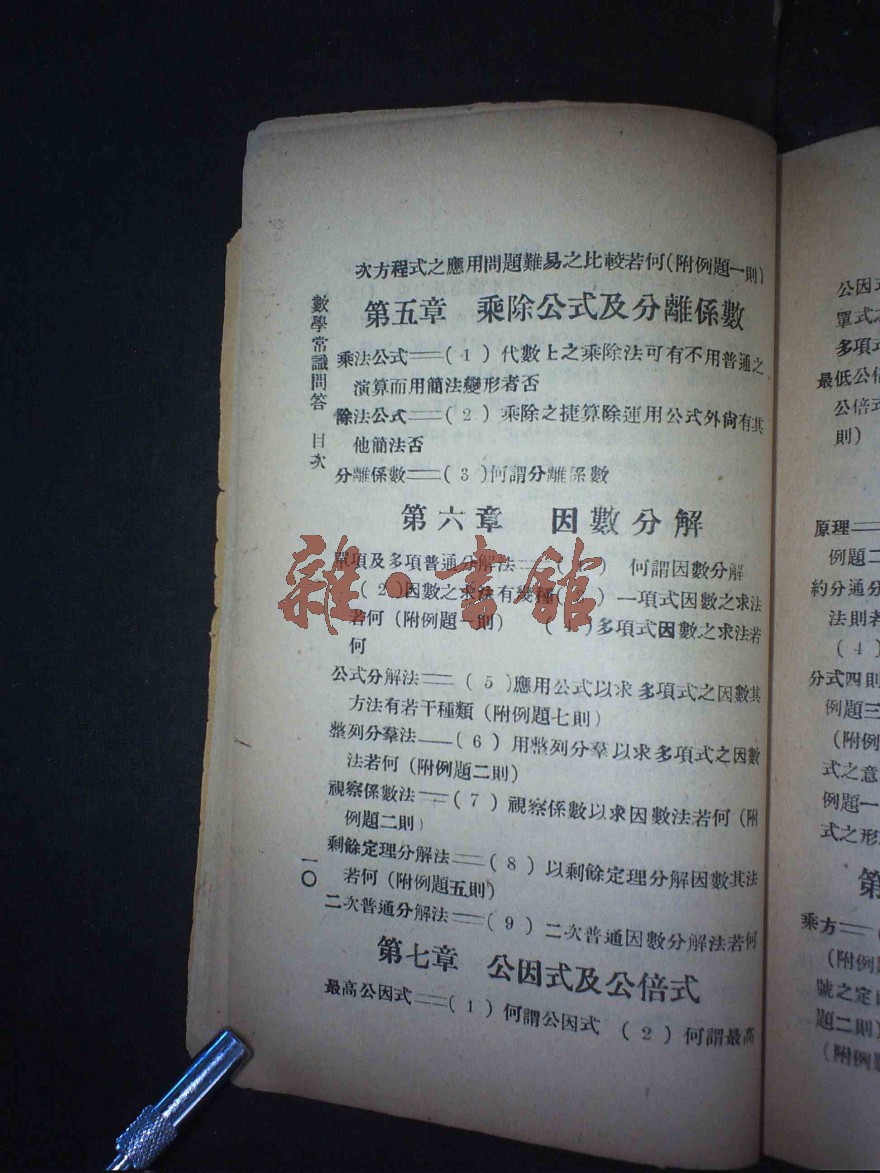 次方程式之應用問題難易之比較若何(附例題一則)
第五章 乘除公式及分離係數
數學常識問答 目次
乘法公式——(1)代數上之乘除法可有不用普通之
演算而用簡法變形者否
除法公式——(2)乘除之捷算除運用公式外尙有其
他簡法否
分離係數——(3)何謂分離係數
第六章 因數分解
單項及多項普通分解法——( ) 何謂因數分解
(2)因數之求法有幾種( )一項式因數之求法
若何(附例題一則) (4)多項式因數之求法若
何
公式分解法——(5)應用公式以求多項式之因數其
方法有若干種類(附例題七則)
整列分羣法——(6)用整列分羣以求多項式之因數
法若何(附例題二則)
視察係數法——(7)視察係數以求因數法若何(附
例題二則)
剩餘定理分解法——(8)以剩餘定理分解因數其法
若何(附例題五則)
二次普通分解法——(9)二次普通因數分解法若何
第七章 公因式及公倍式
最高公因式——(1)何謂公因式 (2)何謂最高
一〇
雜·書館
公因
單式之
多項式
最低公倍
公倍式
則)
原理——
例題二
約分通分
法則若
(4)
分式四則
例題三
(附例
式之意
例題一
式之形
第
乘方——(
(附例
號之定
題二則)
(附例